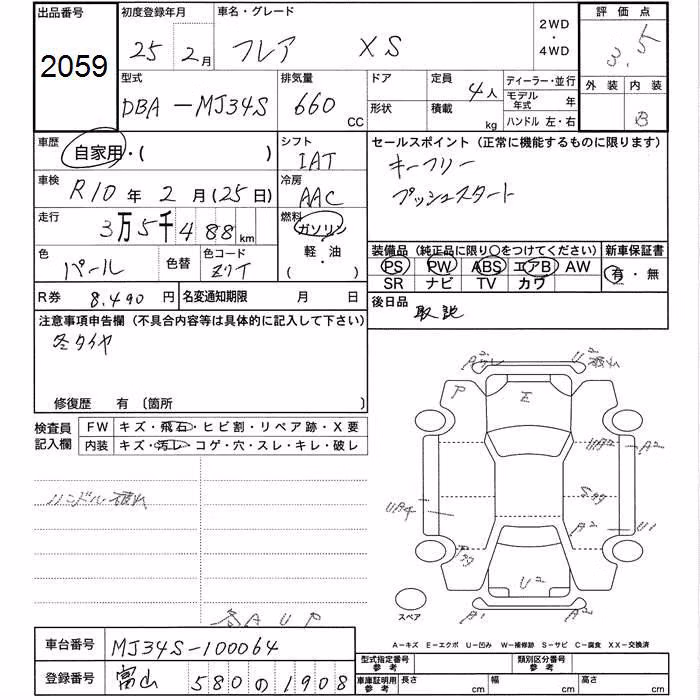 出品番号
2059
初度登録年月
25 2月
車名・グレード
フレア XS
2WD
・
4WD
評価点
3.5
外装 内装
B
型式
DBA-MJ34S
排気量
660
CC
ドア
形状
定員
4人
積載
kg
ディーラー・並行
モデル年式 年
ハンドル 左・右
車歴
自家用・( )
シフト
IAT
セールスポイント(正常に機能するものに限ります)
キーフリー
プッシュスタート
車検
R10年 2月(25日)
冷房
AAC
走行
3万5千488km
燃料
ガソリン
軽・油
( )
色
パール
色替
色コード
ZYT
装備品(純正品に限り○をつけてください)
PS PW ABS エアB AW
SR ナビ TV カワ
新車保証書
有・無
R券 8,490円
名変通知期限 月 日
後日品
取説
注意事項申告欄(不具合内容等は具体的に記入して下さい)
冬タイヤ
修復歴 有〔箇所 〕
検査員
記入欄
FW キズ・飛石・ヒビ割・リペア跡・X要
内装 キズ・汚レ・コゲ・穴・スレ・キレ・破レ
ハンドル破れ
各AUP
P
E
U2
A2
A2
U1
A1
A2
スペア
A-キズ E-エクボ U-凹み W-補修跡 S-サビ C-腐食 XX-交換済
車台番号 MJ34S-100064
登録番号 富山 580の1908
型式指定番号
参考
類別区分番号
参考
車庫証明用
参考
長さ cm
幅 cm
高さ cm